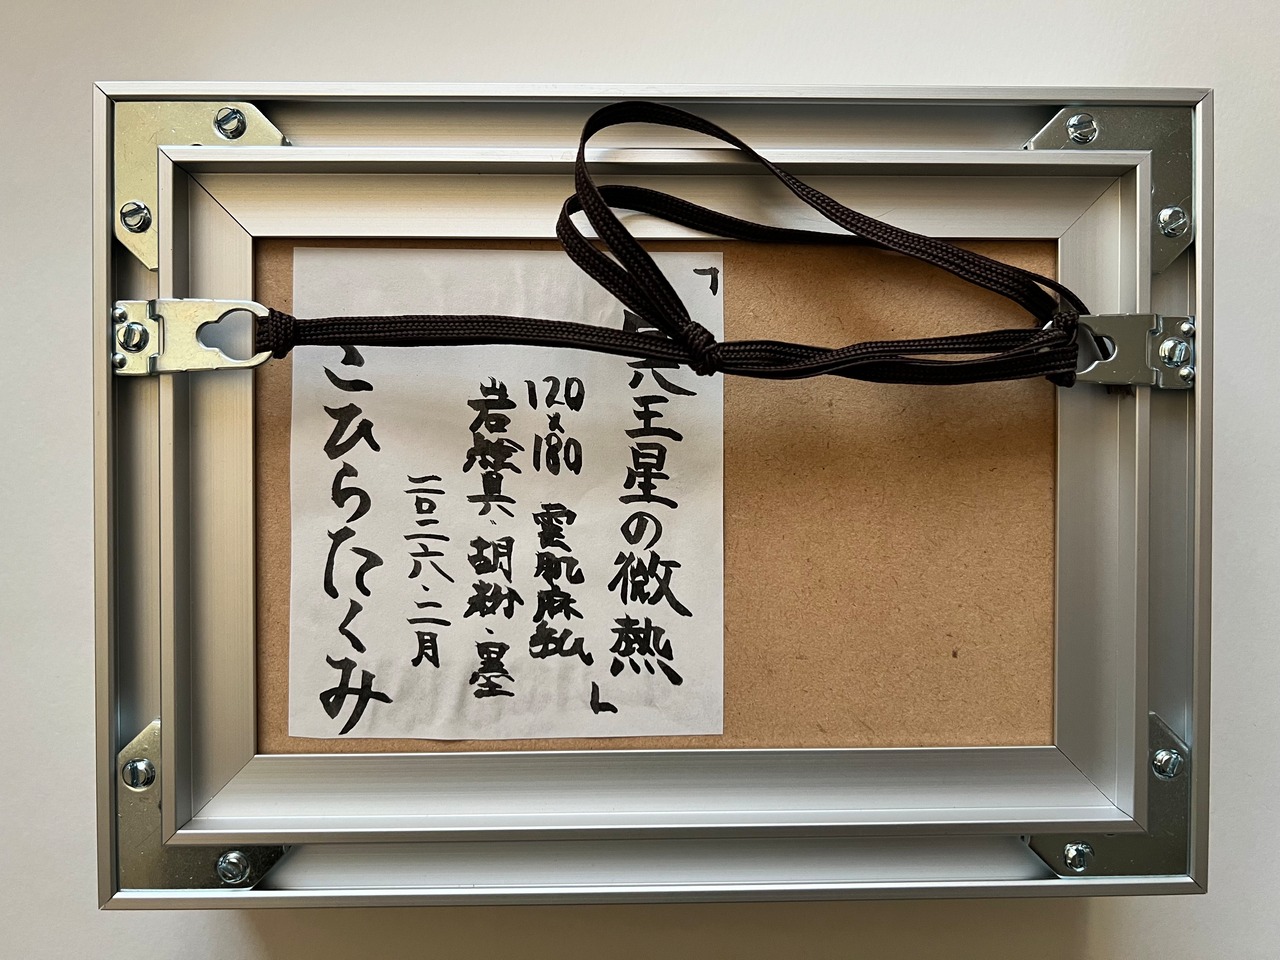 「冥王星の微熱」
120×180 雲肌麻紙
岩絵具、胡粉、墨
二〇二六・二月
こひらたくみ